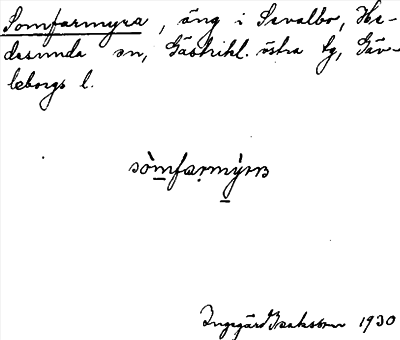 Somfarmyra, äng i Sevalbo, He-
desunda sn, Gästrikl. östra tg, Gäv-
leborgs l.
sòmfarmỳrʙ
Ingegärd Isaksson 1930